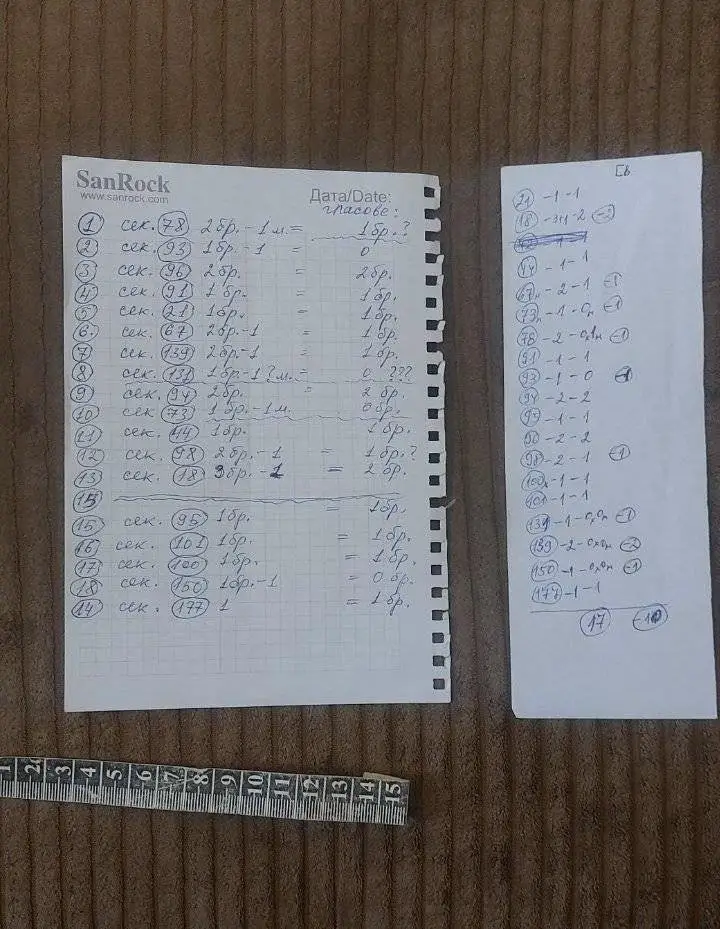 SanRock
www.sanrock.com
Дата/Date:
гласове:
1 сек. 78 2бр. - 1 м. = 1бр.?
2 сек. 93 1бр. - 1 = 0
3 сек. 96 2бр. = 2бр.
4 сек. 91 1бр. = 1бр.
5 сек. 21 1бр. = 1бр.
6. сек. 67 2бр. - 1 = 1бр.
7 сек. 139 2бр. - 1 = 1бр.
8 сек. 131 1бр. - 1? м. = 0 ???
9 сек. 94 2бр. = 2бр.
10 сек. 73 1бр. - 1м. 0бр.
11 сек. 44 1бр. 1бр.
12 сек. 98 2бр. - 1 = 1бр.?
13 сек. 18 3бр. - 1 = 2бр.
15
15 сек. 95 1бр. = 1бр.
16 сек. 101 1бр. = 1бр.
17 сек. 100 1бр. = 1бр.
18 сек. 150 1бр. - 1 = 0бр.
14 сек. 177 1 = 1бр.
21 - 1 - 1
18 - 2 -2
44 - 1 - 1
67 - 2 - 1 -1
73 - 1 - -1
78 - 2 - -1
91 - 1 - 1
93 - 1 - 0 -1
94 - 2 - 2
95 - 1 - 1
96 - 2 - 2
98 - 2 - 1 -1
100 - 1 - 1
101 - 1 - 1
131 - 1 - -1
139 - 2 - -2
150 - 1 - -1
177 - 1 - 1
17 -10